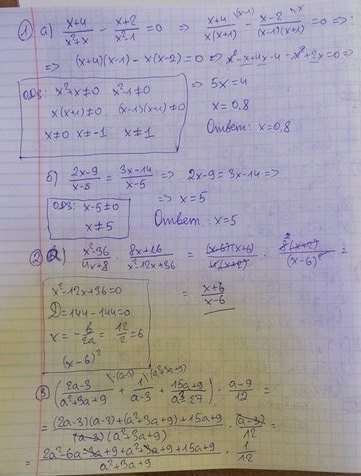 ① а) (x+4)/(x²+x) - (x+2)/(x²-1) = 0 ⇒ (x+4)/(x(x+1)) - (x-2)/((x-1)(x+1)) = 0 ⇒
⇒ (x+4)(x-1) - x(x-2) = 0 ⇒ x²-x+4x-4-x²+2x=0 ⇒
ОДЗ: x²+x≠0 x²-1≠0
x(x+1)≠0 (x-1)(x+1)≠0
x≠0 x≠-1 x≠1
⇒ 5x=4
x=0,8
Ответ: x=0,8
б) (2x-9)/(x-5) = (3x-14)/(x-5) ⇒ 2x-9=3x-14 ⇒
⇒ x=5
ОДЗ: x-5≠0
x≠5
Ответ: x=5
② (x²-36)/(4x+8) · (8x+16)/(x²-12x+36) = (x-6)(x+6)/(4(x+2)) · 8(x+2)/(x-6)² =
x²-12x+36=0
D=144-144=0
x = -b/2a = 12/2 = 6
(x-6)²
= (x+6)/(x-6)
③ ((2a-3)/(a²+3a+9) + 1/(a-3) + (15a+9)/(a³-27)) · (a-9)/12 =
= ((2a-3)(a-3)+(a²+3a+9)+15a+9)/((a-3)(a²+3a+9)) · (a-3)/12 =
= (2a²-6a-3a+9+a²+3a+9+15a+9)/(a²+3a+9) · 1/12 =